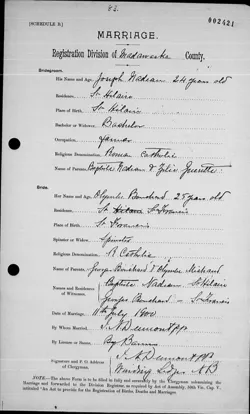 83.
002421
[SCHEDULE B.]
MARRIAGE.
Registration Division of Madawaska County.
Bridegroom.
His Name and Age, Joseph Nadeau 24 years old
Residence, St Hilaire
Place of Birth, St Hilaire
Bachelor or Widower, Bachelor
Occupation, farmer
Religious Denomination, Roman Catholic
Names of Parents, Baptiste Nadeau & Julie
Bride.
Her Name and Age, Olymbe Bouchard 25 years old
Residence, St Francis
Place of Birth, St Francis
Spinster or Widow, Spinster
Religious Denomination, R Catholic
Names of Parents, George Bouchard & Olymbe Michaud
Names and Residences of Witnesses, Baptiste Nadeau St Hilaire
George Bouchard - St Francis
Date of Marriage, 11th July 1900
By Whom Married, L. N. Dumont
By License or Banns, By Banns
Signature and P. O. Address of Clergyman, L. N. Dumont
N B
NOTE.—The above Form is to be filled in fully and correctly by the Clergyman solemnizing the
Marriage and forwarded to the Division Registrar as required by Act of Assembly, 50th Vic. Cap. V.
intituled "An Act to provide for the Registration of Births, Deaths and Marriages.